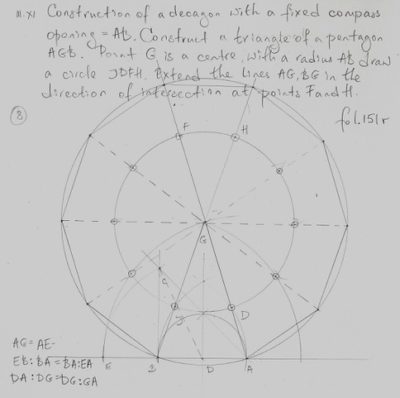 III.XI Construction of a decagon with a fixed compass
opening = AB. Construct a triangle of a pentagon
AGB. Point G is a centre, with a radius AB draw
a circle JDFH. Extend the lines AG, BG in the
direction of intersection at points F and H.
8
fol.151r
F
H
G
C
J
D
AG = AE
EB:BA = BA:EA
DA:DG = DG:GA
E
B
D
A